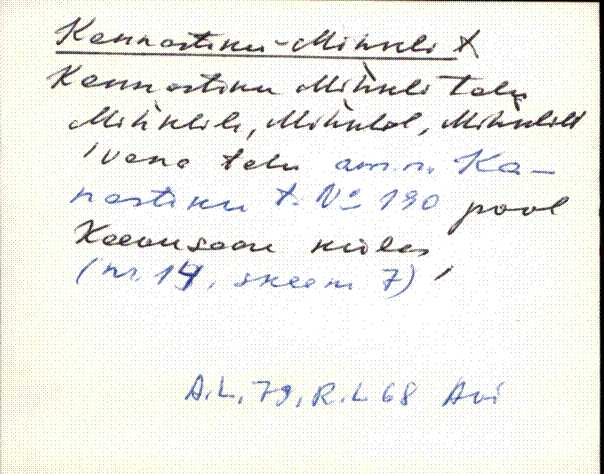 Kannastiku-Mihkli t
Kannastiku Mih̀kli talu
Mih̀klile, Mih̀klil, Mih̀klilt
'vana talu am.n. Ka-
nastiku t. № 190 pool
küla
(nr. 14, skeem 7)'
A.L. 79, R.L 68 Avi